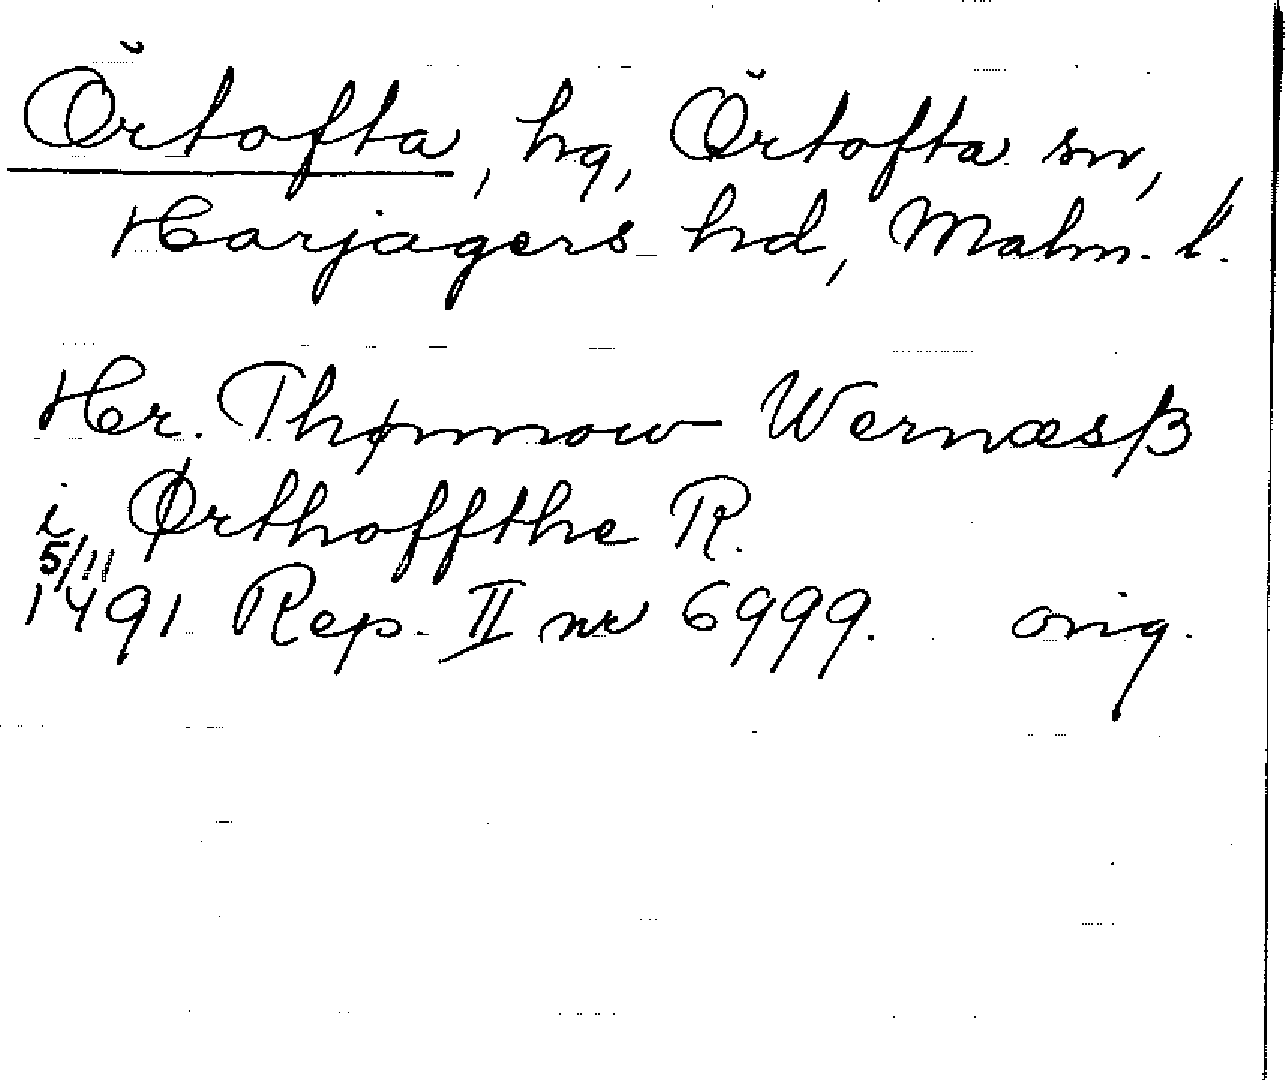 Örtofta, hg, Örtofta sn,
Harjagers hd, Malm. l.
Her. Thønnow Wernæsß
i Ørthoffthe R.
5/11
1491 Rep. II nr 6999. orig.